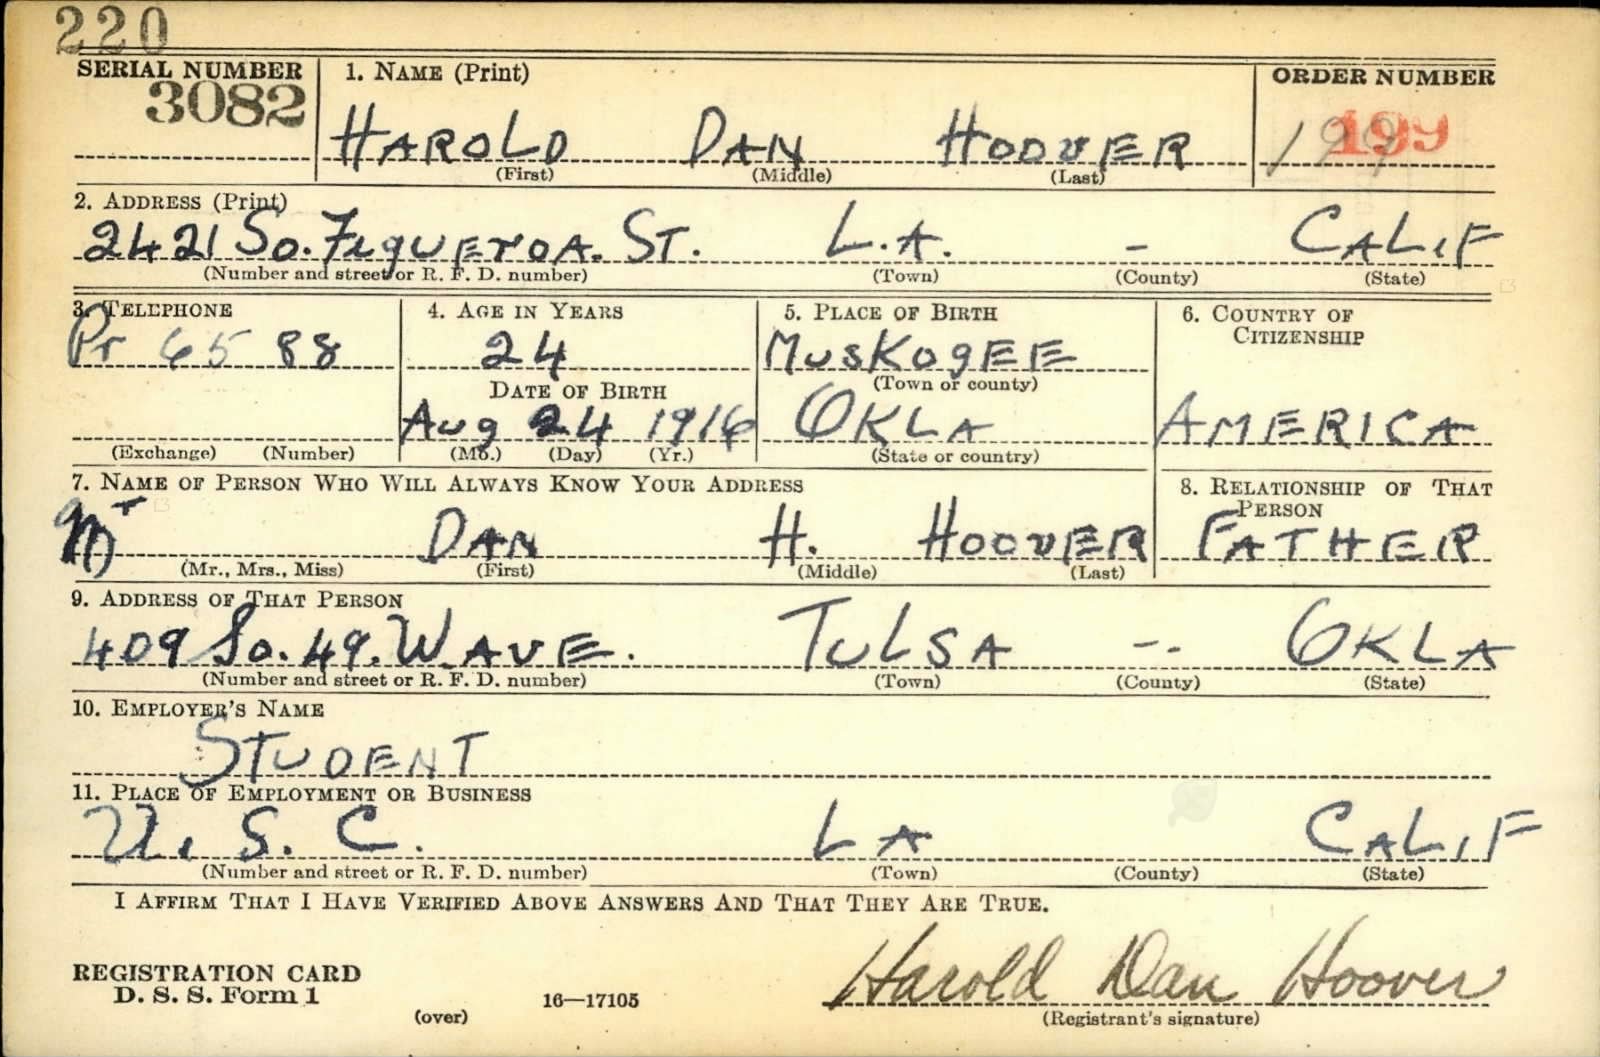 220
SERIAL NUMBER 1. NAME (Print) ORDER NUMBER
3082 HAROLD DAN HOOVER 199 199
(First) (Middle) (Last)
2. ADDRESS (Print)
2421 So. FIgUEROA. ST. L.A. - CALIF
(Number and street or R. F. D. number) (Town) (County) (State)
3. TELEPHONE 4. AGE IN YEARS 5. PLACE OF BIRTH 6. COUNTRY OF CITIZENSHIP
Pr 6588 24 MUSKOgEE
DATE OF BIRTH (Town or county)
Aug 24 1916 OKLA AMERICA
(Exchange) (Number) (Mo.) (Day) (Yr.) (State or country)
7. NAME OF PERSON WHO WILL ALWAYS KNOW YOUR ADDRESS 8. RELATIONSHIP OF THAT PERSON
Mr DAN H. HOOVER FATHER
(Mr., Mrs., Miss) (First) (Middle) (Last)
9. ADDRESS OF THAT PERSON
409 So. 49. W. AVE. TULSA -- OKLA
(Number and street or R. F. D. number) (Town) (County) (State)
10. EMPLOYER'S NAME
STUDENT
11. PLACE OF EMPLOYMENT OR BUSINESS
U. S. C. LA CALIF
(Number and street or R. F. D. number) (Town) (County) (State)
I AFFIRM THAT I HAVE VERIFIED ABOVE ANSWERS AND THAT THEY ARE TRUE.
REGISTRATION CARD Harold Dan Hoover
D. S. S. Form 1 16—17105
(over) (Registrant's signature)